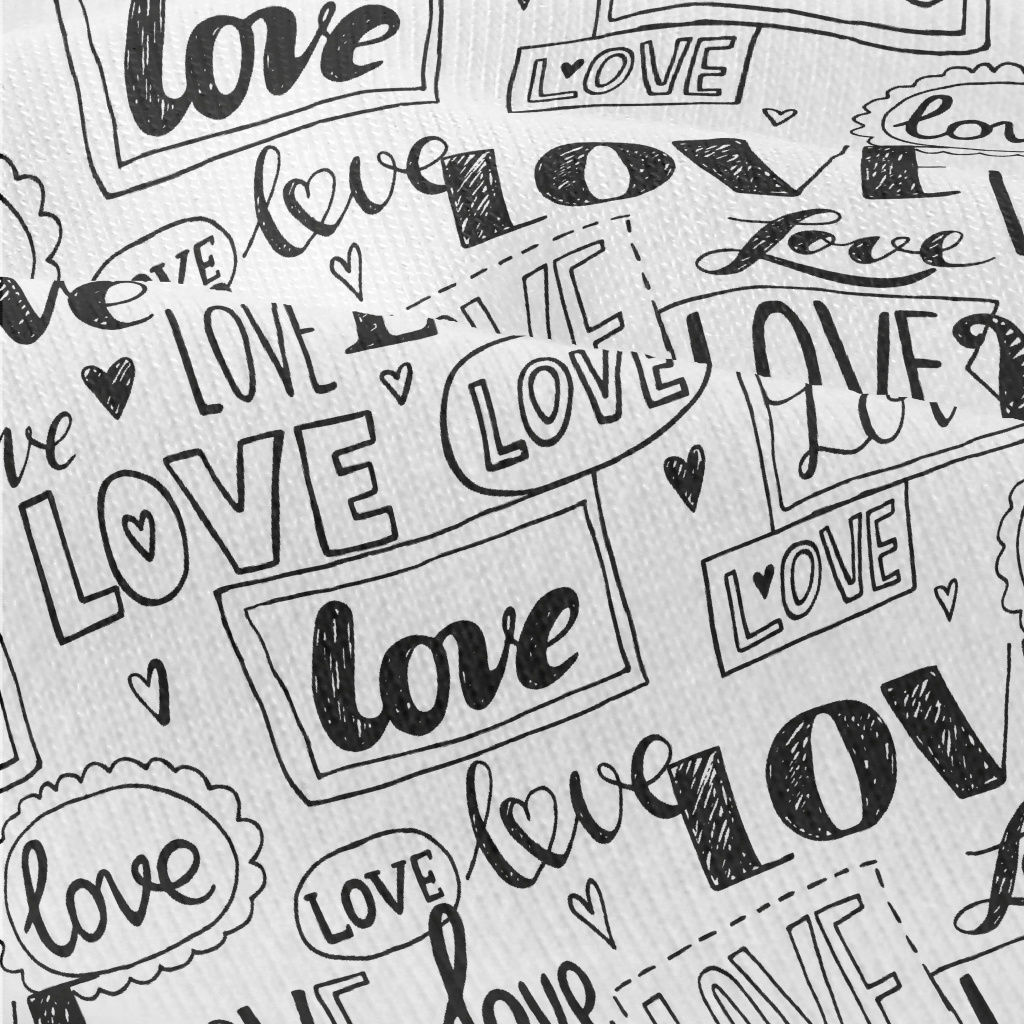 love
LOVE
lov
love
LOVE
OVE
Love
ve
LOVE
L
VE
LOVE
LOVE
ve
LOVE
Lov
LOVE
love
LOVE
love
LOV
love
LOVE
love
LOVE